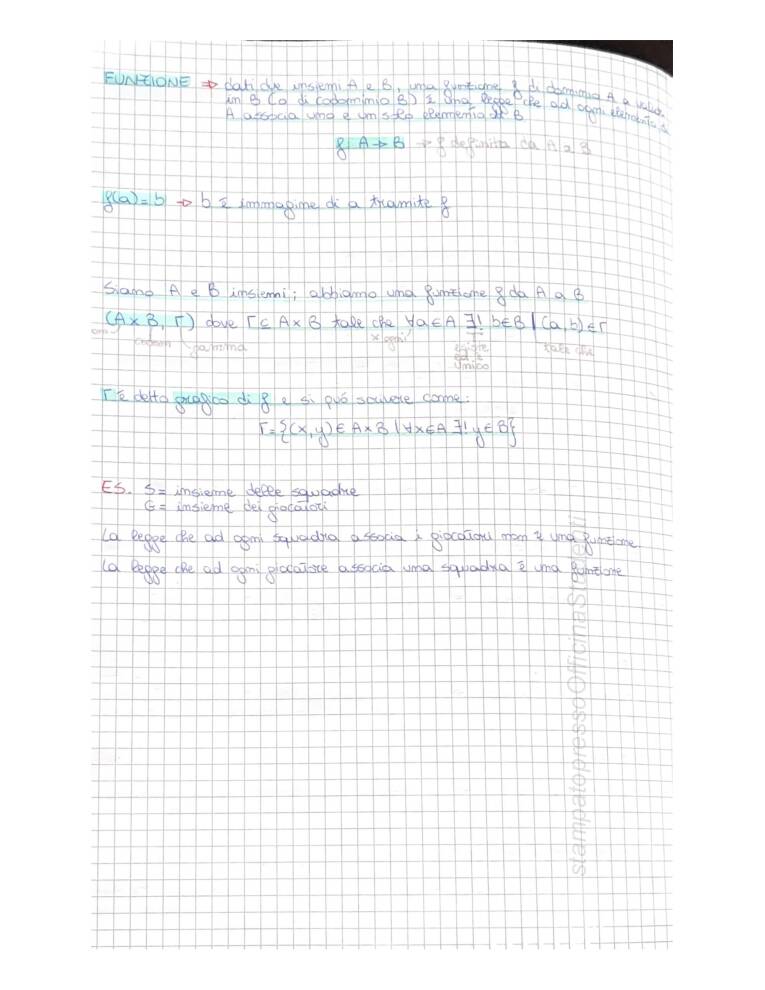 FUNZIONE ⇒ dati due insiemi A e B, una funzione f di dominio A a valori
in B (o di codominio B) è una legge che ad ogni elemento di
A associa uno e un solo elemento di B
f: A → B → f definita da A a B
f(a) = b → b è immagine di a tramite f
Siano A e B insiemi; abbiamo una funzione f da A a B
(A × B, Γ) dove Γ ⊆ A × B tale che ∀a ∈ A ∃! b ∈ B | (a, b) ∈ Γ
gamma x ogni esiste ed è unico tale che
Γ è detto grafico di f e si può scrivere come:
Γ = {(x, y) ∈ A × B | ∀x ∈ A ∃! y ∈ B}
ES. S = insieme delle squadre
G = insieme dei giocatori
La legge che ad ogni squadra associa i giocatori non è una funzione
La legge che ad ogni giocatore associa una squadra è una funzione
stampatopressoOfficinaStudenti